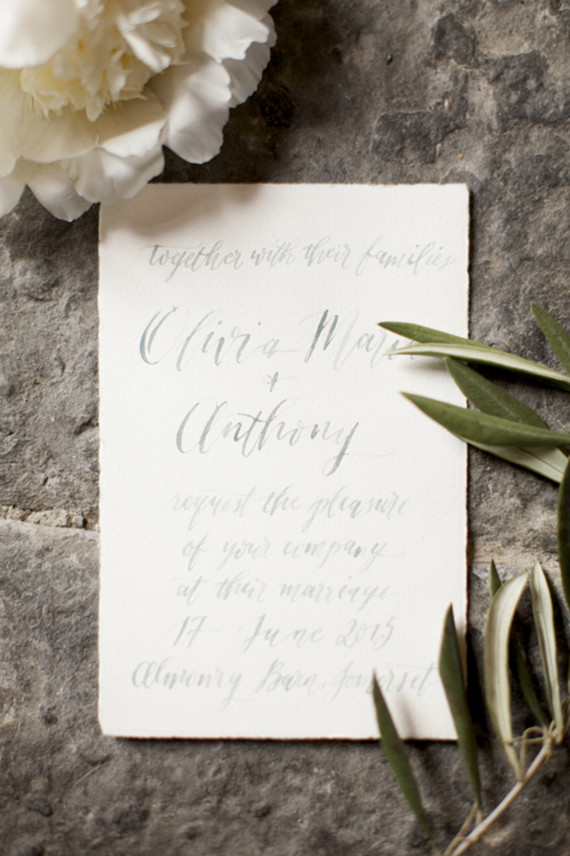 together with their families
Olivia Marie
+
Anthony
request the pleasure
of your company
at their marriage
17 June 2015
Almonry Barn, Somerset